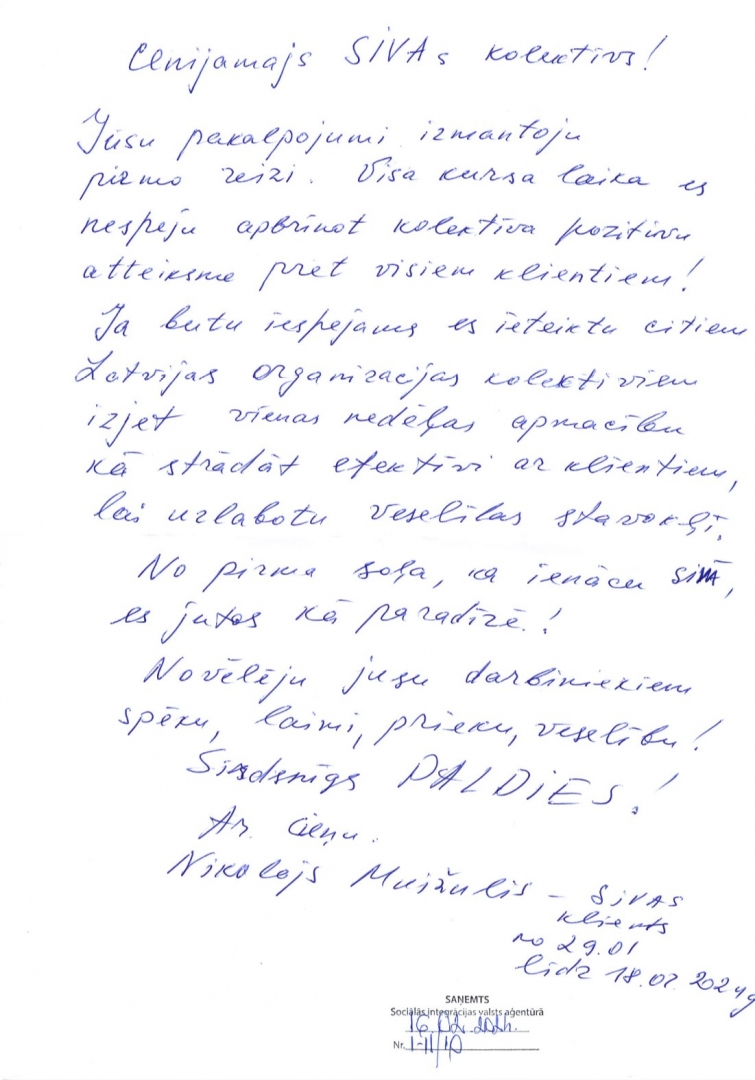 Cienījamajs SIVAs kolektīvs!
Jūsu pakalpojumi izmantoju
pirmo reizi. Visa kursa laika es
nespēju apbrīnot kolektīva pozitīvu
atteiksme pret visiem klientiem!
Ja butu iespējams es ieteiktu citiem
Latvijas organizacijas kolektiviem
izjet vienas nedēļas apmacību
kā strādāt efektīvi ar klientiem,
lai uzlabotu veselības stavokļi.
No pirma soļa, ka ienācu SIVĀ,
es jutos kā paradīzē!
Novēlēju jusu darbiniekiem
spēku, laimi, prieku, veselību!
Sirdsnīgs PALDIES!
Ar cieņu.
Nikolajs Muižulis – SIVAS
klients
no 29.01
līdz 18.02.2024g
SAŅEMTS
Sociālās integrācijas valsts aģentūrā
16.02.2024.
Nr. 1-11/10